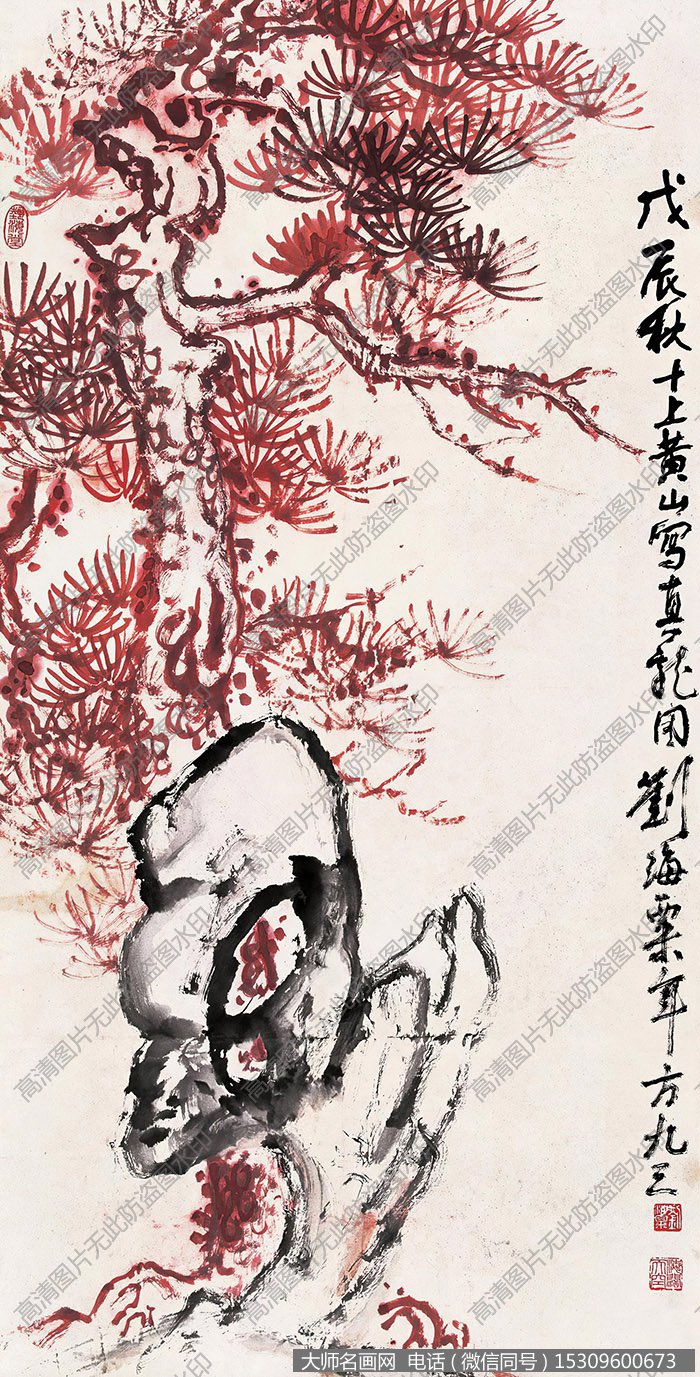 戊辰秋十上黄山寫真龍图劉海粟年方九三
高清图片无此防盗图水印
大师名画网 电话（微信同号）15309600673